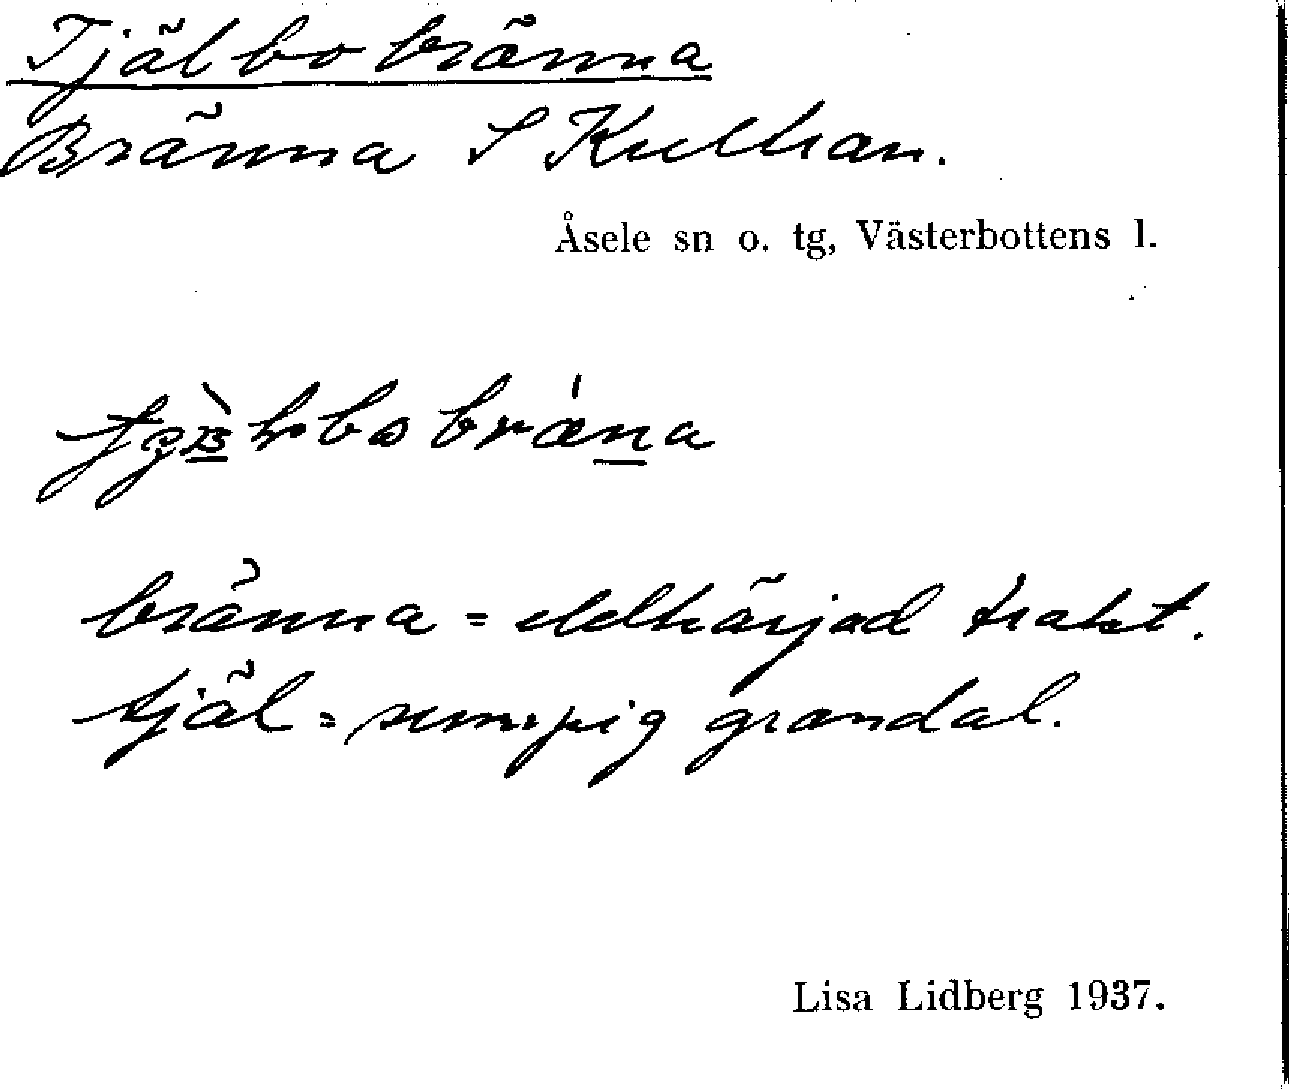 Tjälbobränna
Bränna S Kullran.
Åsele sn o. tg, Västerbottens l.
bränna = eldhärjad trakt.
tjäl = sumpig grandal.
Lisa Lidberg 1937.